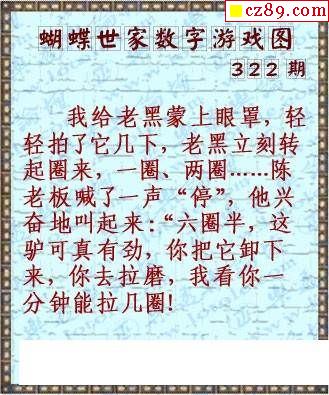 cz89.com
蝴蝶世家数字游戏图
322 期
我给老黑蒙上眼罩，轻
轻拍了它几下，老黑立刻转
起圈来，一圈、两圈……陈
老板喊了一声“停”，他兴
奋地叫起来：“六圈半，这
驴可真有劲，你把它卸下
来，你去拉磨，我看你一
分钟能拉几圈!